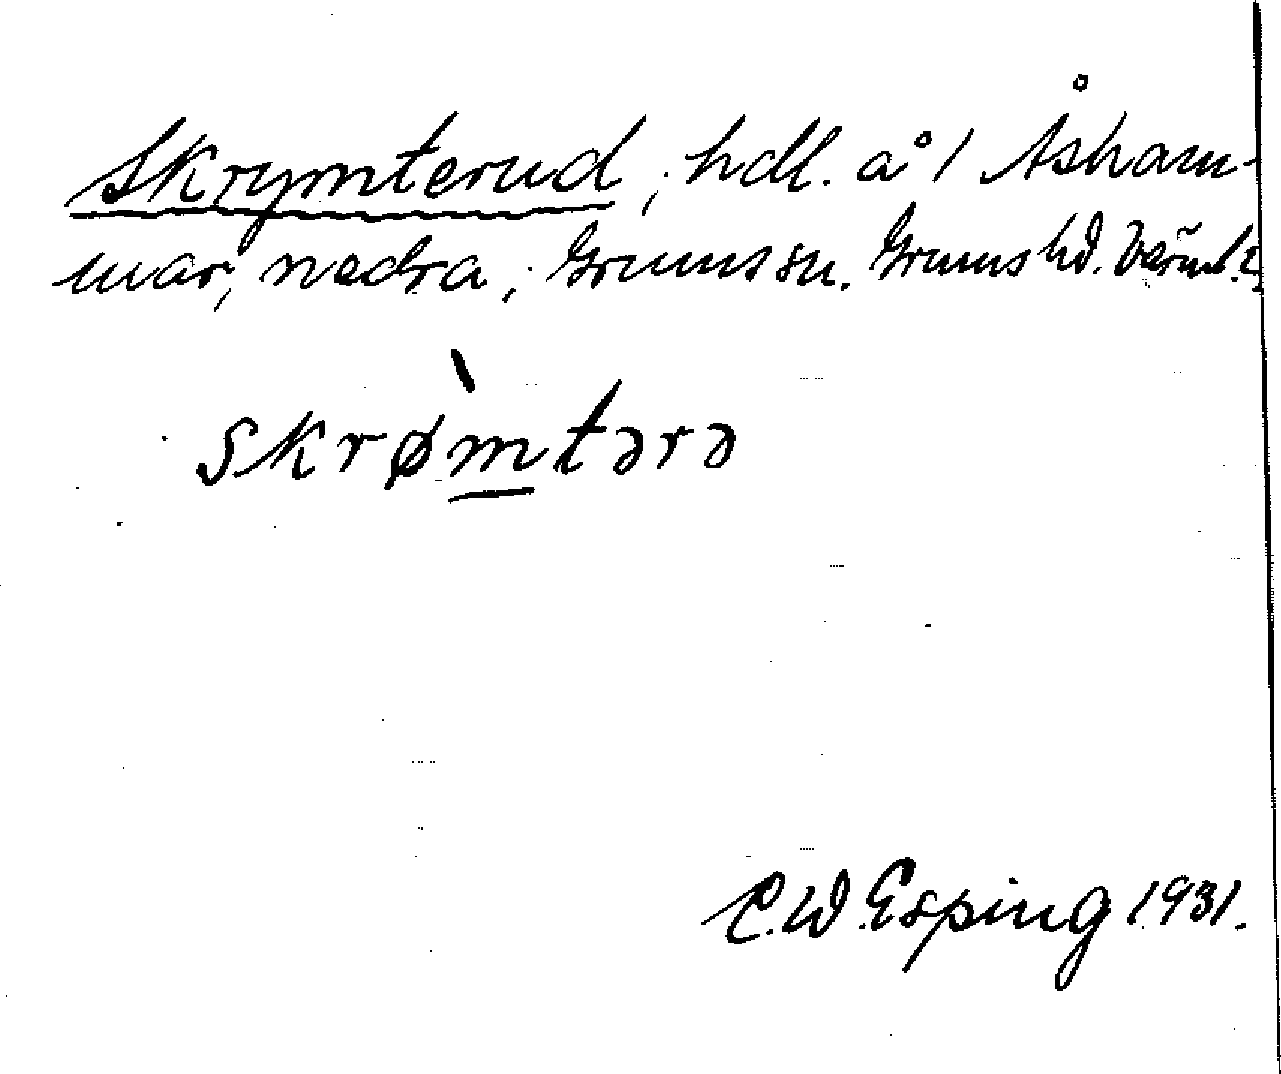 Skrymterud, hdl. å 1 Åsham-
mar, nedra, Grums sn. Grums hd. Värml.
skrø̀m̲tərə
C.W. Esping 1931.